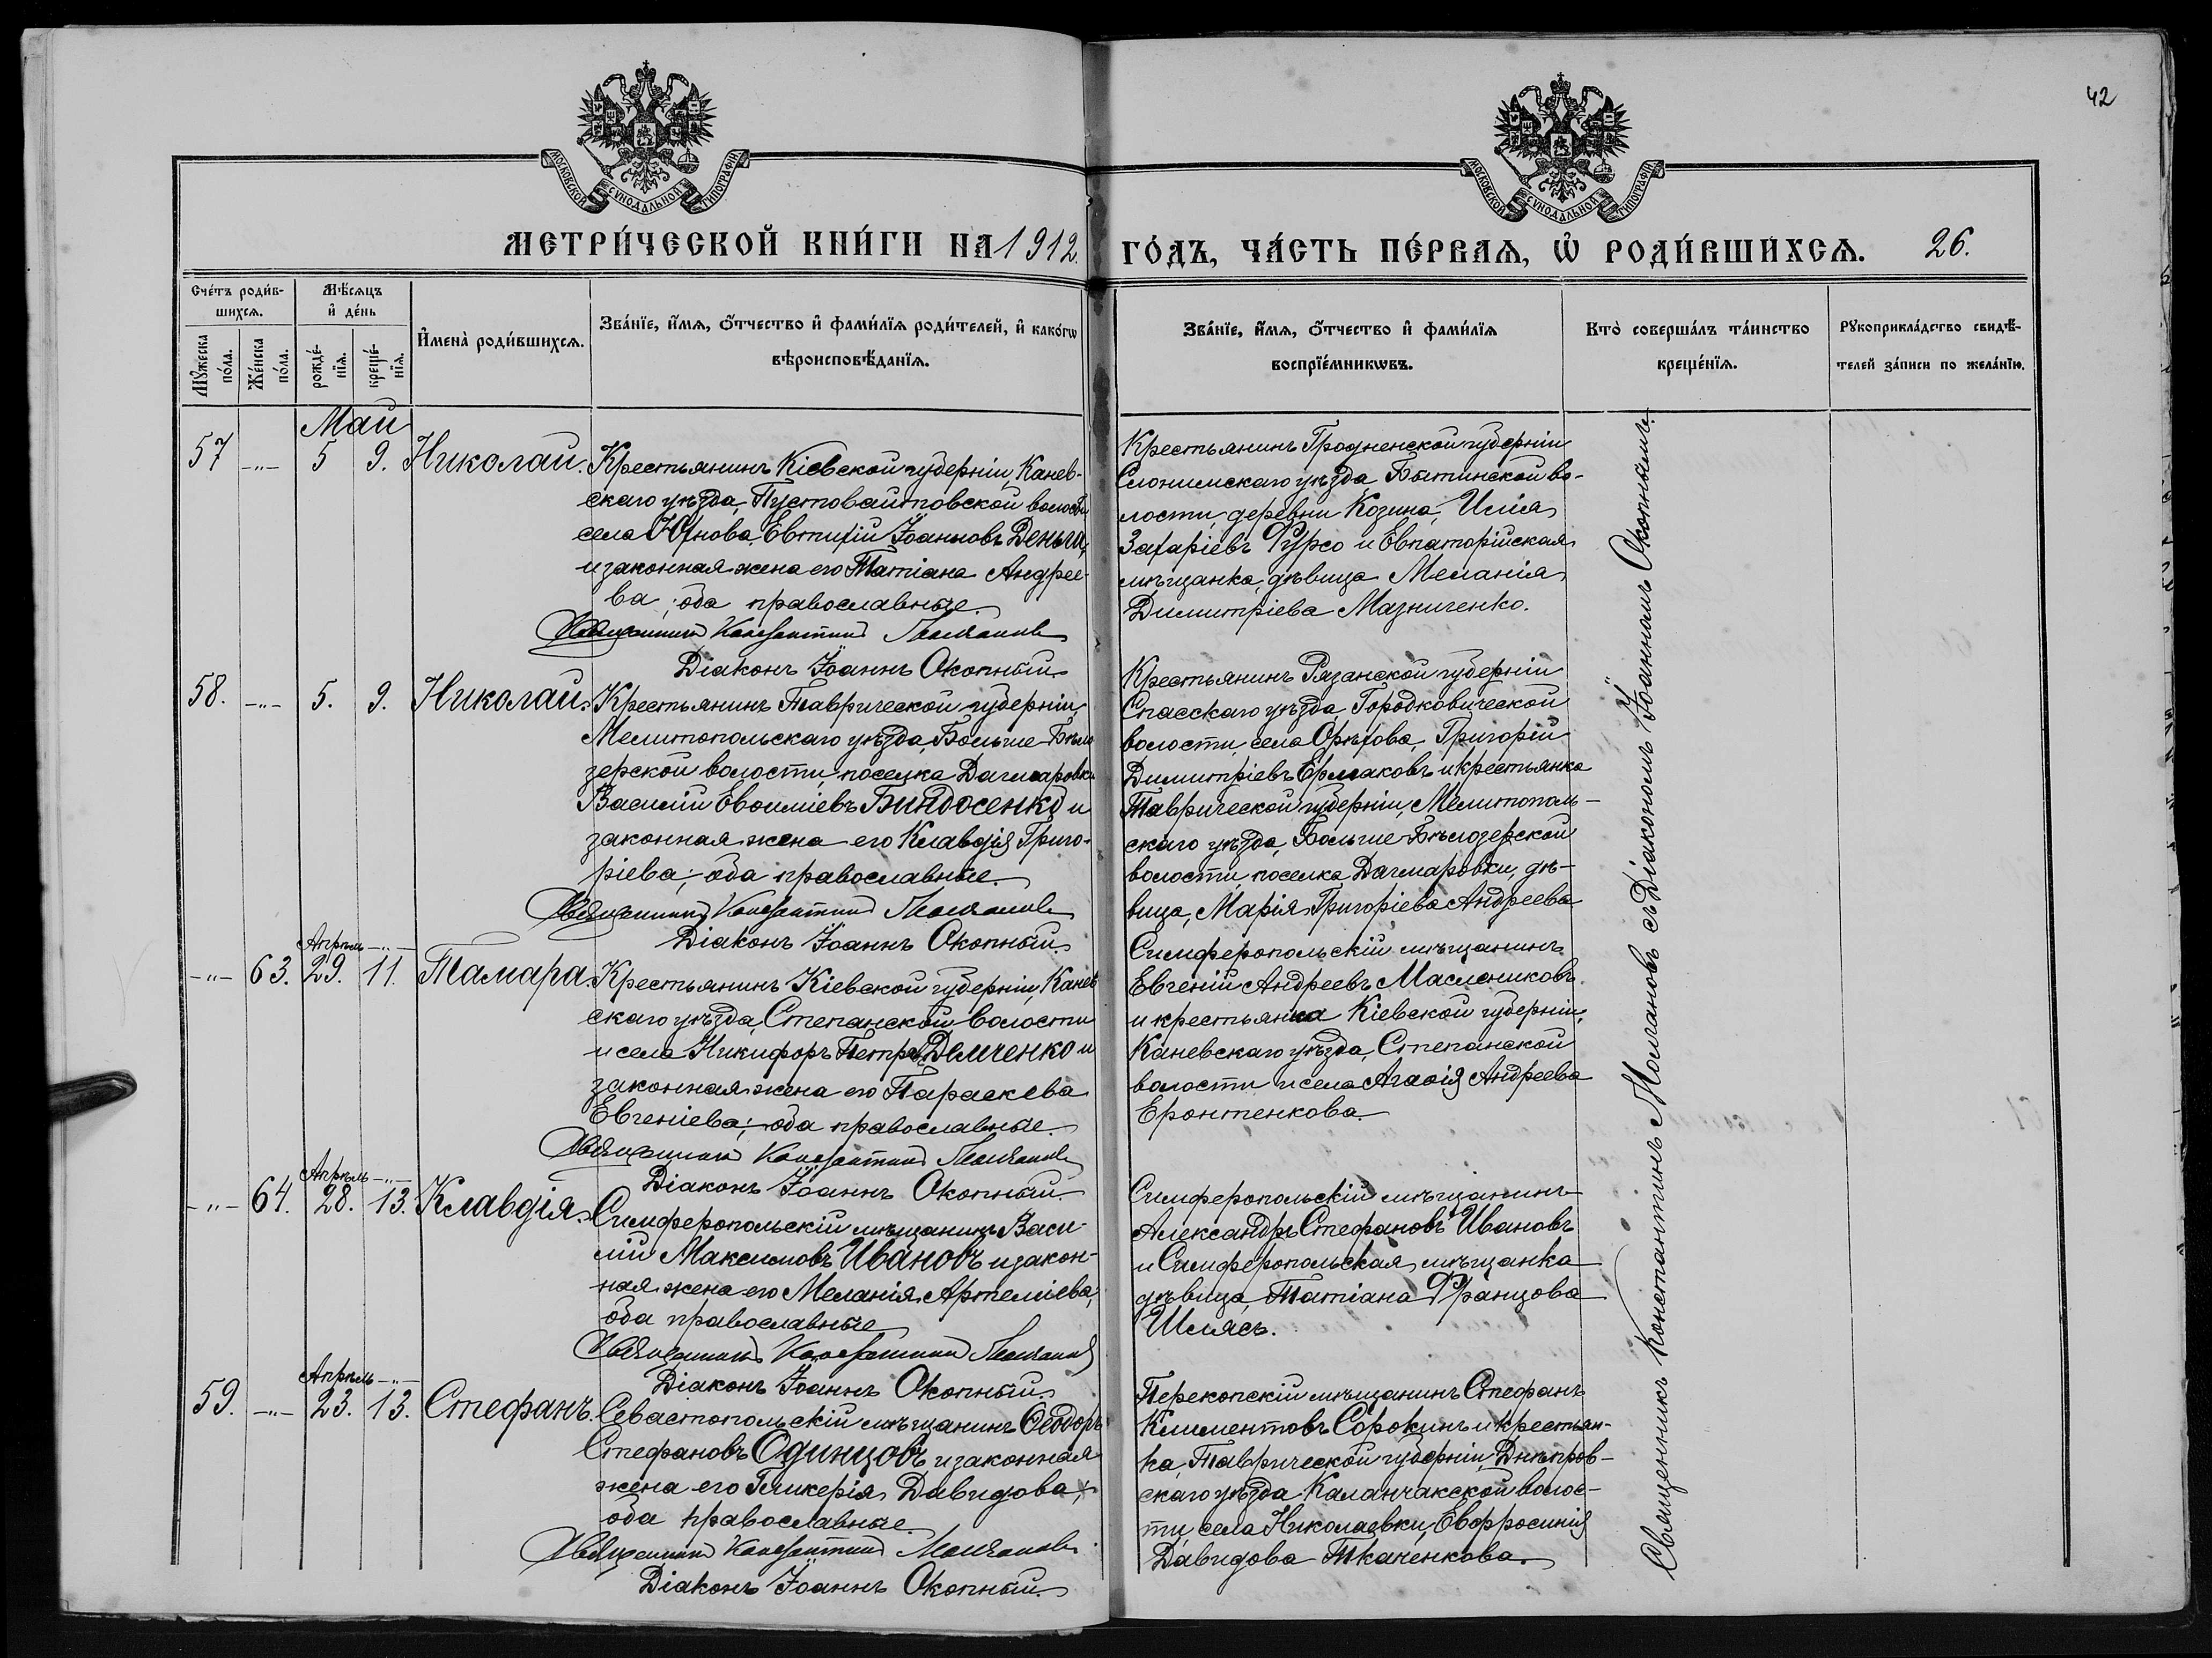 42
МОСКОВСКОЙ СѴНОДАЛЬНОЙ ТИПОГРАФІИ
МОСКОВСКОЙ СѴНОДАЛЬНОЙ ТИПОГРАФІИ
МЕТРИ́ЧЕСКОЙ КНИ́ГИ НА 1912. ГО́ДЪ, ЧА́СТЬ ПЕ́РВАѦ, Ѽ РОДИ́ВШИХСѦ. 26.
Сче́тъ роди́в-
шихсѧ.
Мѣ́сѧцъ
и҆ де́нь
Мꙋ́жеска
по́ла.
Же́нска
по́ла.
рожде́-
нїѧ.
креще́-
нїѧ.
И҆мена̀ роди́вшихсѧ.
Зва́нїе, и҆́мѧ, ѻ҆́тчество и҆ фами́лїѧ роди́телей, и҆ како́гѡ
вѣроисповѣ́данїѧ.
Зва́нїе, и҆́мѧ, ѻ҆́тчество и҆ фами́лїѧ
воспрїе́мникѡвъ.
Кто̀ соверша́лъ та́инство
креще́нїѧ.
Рꙋкоприкла́дство свидѣ́-
телей за́писи по жела́нїю.
Май
57 -"- 5 9. Николай.
Крестьянинъ Кіевской губерніи, Канев-
скаго уѣзда, Пустоваитовской волости
села Юхнова, Евтихій Іоанновъ Деньга,
и законная жена его Татіана Андрее-
ва; оба православные.
Священникъ Константинъ Молчановъ
Діаконъ Іоаннъ Окопный.
Крестьянинъ Гродненской губерніи
Слонимскаго уѣзда, Бытинской во-
лости, деревни Козина, Илія
Захаріевъ Фурсо и Евпаторійская
мѣщанка, дѣвица Меланія
Димитріева Мазниченко.
58. -"- 5. 9. Николай.
Крестьянинъ Таврической губерніи,
Мелитопольскаго уѣзда, Больше-Бѣло
зерской волости, поселка Дагмаровки
Василій Евѳиміевъ Биндосенко и
законная жена его Клавдія Григо-
ріева; оба православные.
Священникъ Константинъ Молчановъ
Діаконъ Іоаннъ Окопный.
Крестьянинъ Рязанской губерніи
Спасскаго уѣзда, Городковической
волости, села Орѣхова, Григорій
Димитріевъ Ермаковъ и крестьянка
Таврической губерніи, Мелитополь-
скаго уѣзда, Больше-Бѣлозерской
волости, поселка Дагмаровки, дѣ-
вица, Марія Григоріева Андреева
Апрѣль -"-
-"- 63. 29. 11. Тамара.
Крестьянинъ Кіевской губерніи, Канев
скаго уѣзда, Степанской волости
и села Никифоръ Петровъ Демченко и
законная жена его Параскева
Евгеніева; оба православные.
Священникъ Константинъ Молчановъ
Діаконъ Іоаннъ Окопный.
Симферопольскій мѣщанинъ
Евгеній Андреевъ Маслениковъ
и крестьянка Кіевской губерніи,
Каневскаго уѣзда, Степанской
волости и села Агаѳія Андреева
Еронтенкова.
Апрѣль -"-
-"- 64. 28. 13. Клавдія.
Симферопольскій мѣщанинъ Васи-
лій Максимовъ Ивановъ и закон-
ная жена его Меланія Артеміева,
оба православные
Священникъ Константинъ Молчановъ
Діаконъ Іоаннъ Окопный.
Симферопольскій мѣщанинъ
Александръ Стефановъ Ивановъ
и Симферопольская мѣщанка
дѣвица, Татіана Францова
Шлясъ.
Апрѣль -"-
59. -"- 23. 13. Стефанъ.
Севастопольскій мѣщанинъ Ѳеодоръ
Стефановъ Одинцовъ и законная
жена его Гликерія Давидова;
оба православные
Священникъ Константинъ Молчановъ
Діаконъ Іоаннъ Окопный.
Перекопскій мѣщанинъ Стефанъ
Климентовъ Сорокинъ и крестьян-
ка, Таврической губерніи, Днѣпров-
скаго уѣзда Каланчакской волос-
ти, села Николаевки, Евфросинія
Давидова Ткаченкова.
Священникъ Константинъ Молчановъ съ Діакономъ Іоанномъ Окопнымъ.